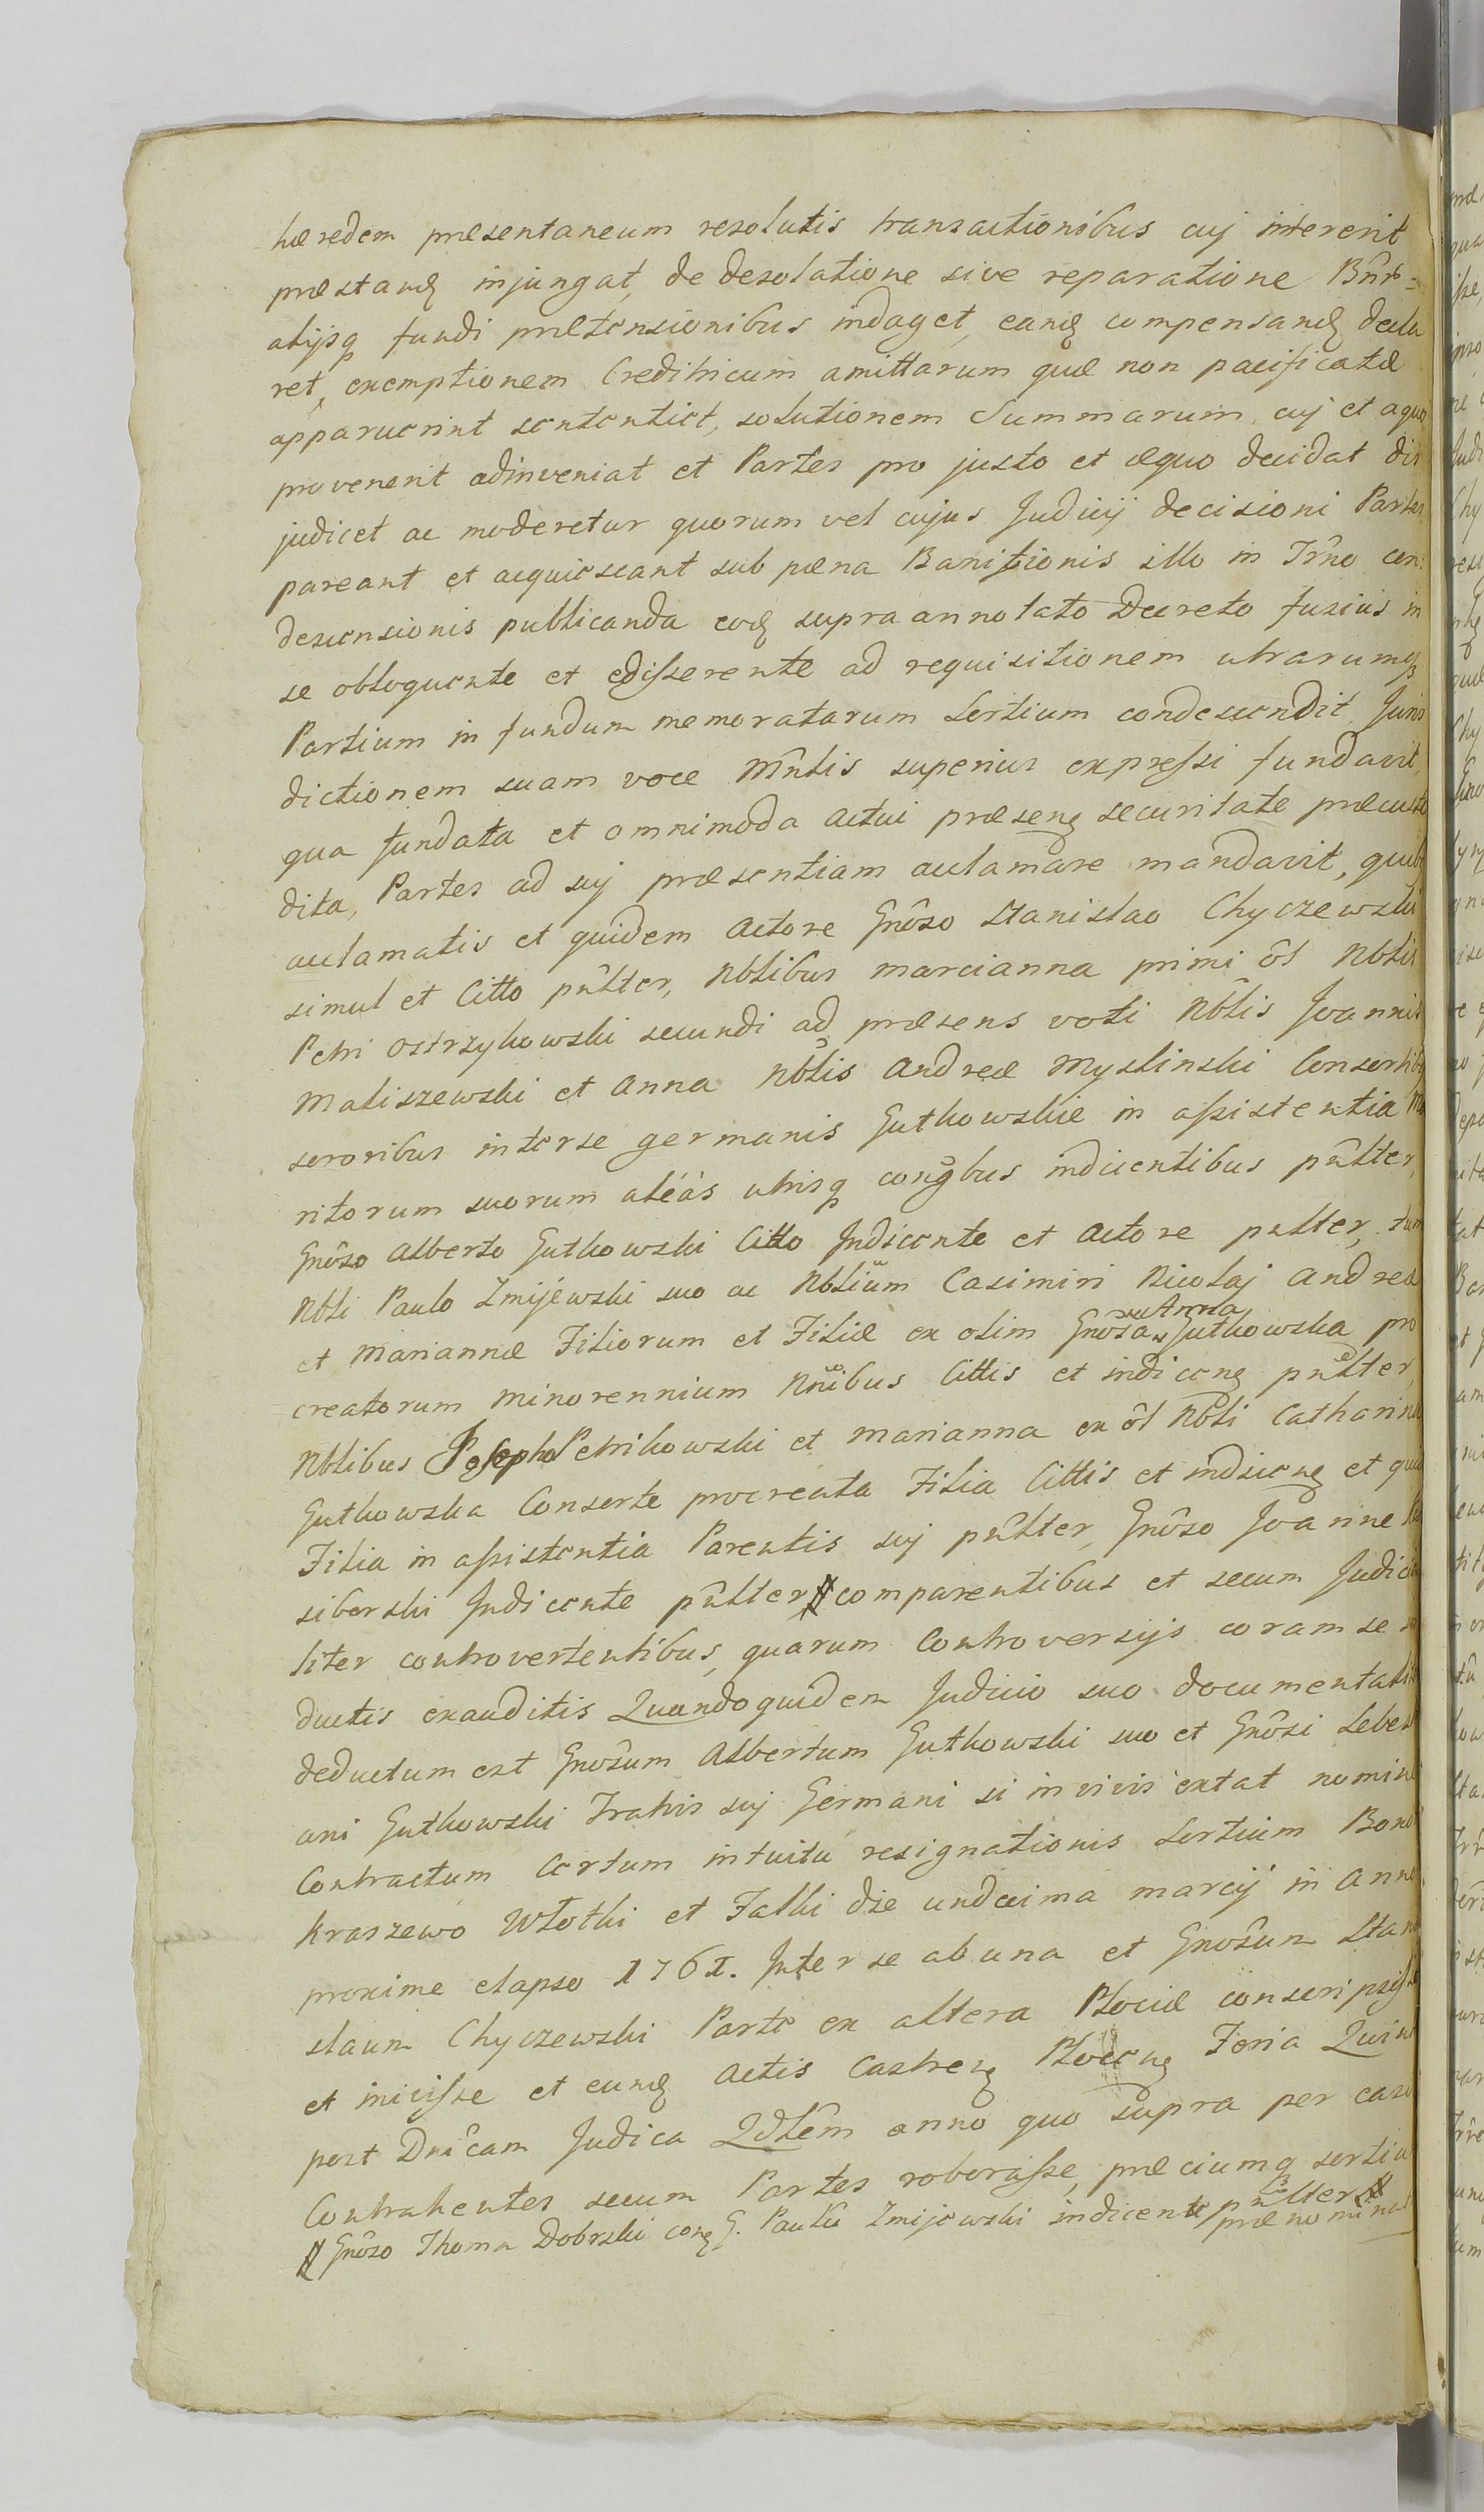 hæredem præsentaneum resolutis transactionibus cuj intererit
præstanḍ injungat, de desolatione sive reparatione Bnr=
alijsq fundi prætensionibus indaget, eanḍ compensanḍ decla
ret, exemptionem Creditricum amittarum quæ non pacificatæ
apparuerint sententiet, solutionem Summarum cuj et a quo
provenerit adinveniat et Partes pro justo et æquo decidat di
judicet ac moderetur quorum vel cujus Judicij decisioni Partes
pareant et acquiescant sub pœna Banitionis illo in Trno con:
descensionis publicanda eoḍ supra annotato Decreto fusius in
se obloquente et edisserente ad requisitionem utrarumq
Partium in fundum memoratarum Sortium condescendit Juris
dictionem suam voce Mntlis superius expressi fundavit,
qua fundata et omnimoda actui præsenḍ securitate præcusto
dita, Partes ad suj præsentiam acclamare mandavit, quib
acclamatis et quidem Actore Gnoso Stanislao Chyczewski
simul et Citto pnlter, Nblibus Marcianna primi ol Nblis
Petri Ostrzykowski secundi ad præsens voti Nblis Joannis
Maliszewski et Anna Nblis Andreæ Myslinski Consortib
sororibus interse germanis Gutkowskie in assistentia Ma
ritorum suorum aleas utrisq conḡbus indicentibus pnlter,
Gnoso Alberto Gutkowski Citto Indicente et Actore pnlter, tum
Nbli Paulo Zmijewski suo ac Nblium Casimiri Nicolaj Andreæ
et Mariannæ Filiorum et Filiæ ex olim Gnosa Anna Gutkowska pro
creatorum minorennium Nnibus Cittis et indicenḍ pnlter,
Nblibus Josepho Petrikowski et Marianna ex ol Nbli Catharina
Gutkowska Consorte procreata Filia Cittis et indicenḍ et qui
Filia in assistentia Parentis suj pnlter, Gnoso Joanne
siberski Indicente pnlter # comparentibus et secum Judicia
liter controvertentibus, quarum Controversijs coram se in
ductis exauditis Quandoquidem Judicio suo documentaliter
deductum est Gnosum Albertum Gutkowski suo et Gnosi Sebes
ani Gutkowski Fratris suj Germani si in vivis extat nomine
Contractum Certum intuitu resignationis Sortium Bono
Kraszewo Włotki et Falki die undecima marcij in Anno
proxime elapso 1761. Inter se ab una et Gnosum Stani
slaum Chyczewski Parte ex altera Plociæ conscripsisse
et inivisse et eunḍ Actis Castrenḍ Plocenḍ Feria Quinta
post Dnicam Judica Qdlem anno quo supra per eas
Contrahentes secum Partes roborasse, præciumq sortiu
# Gnoso Thoma Dobrski conḡ G. Pauli Zmijewski indicente pnlter #
prænominat